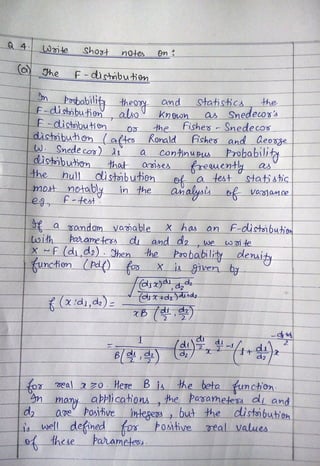 Q 4. Write Short notes on :
(a) The F-distribution
In Probability theory and statistics, the
F-distribution, also known as Snedecor's
F-distribution or the Fisher-Snedecor
distribution (after Ronald Fisher and George
W. Snedecor) is a continuous Probability
distribution that arises frequently as
the null distribution of a test statistic
most notably in the analysis of variance
eg., F-test.
If a random variable X has an F-distribution
with Parameters d1 and d2, we write
X ~ F (d1, d2). Then the Probability density
function (Pdf) for X is given by
f (x; d1, d2) = √((d1x)^d1 . d2^d2 / (d1x+d2)^(d1+d2)) / xB (d1/2, d2/2)
= 1 / B(d1/2, d2/2) (d1/d2)^(d1/2) x^(d1/2 -1) (1 + d1/d2 x)
for real x ≥ 0. Here B is the beta function.
In many applications, the Parameters d1 and
d2 are Positive integers, but the distribution
is well defined for Positive real values
of these Parameters.